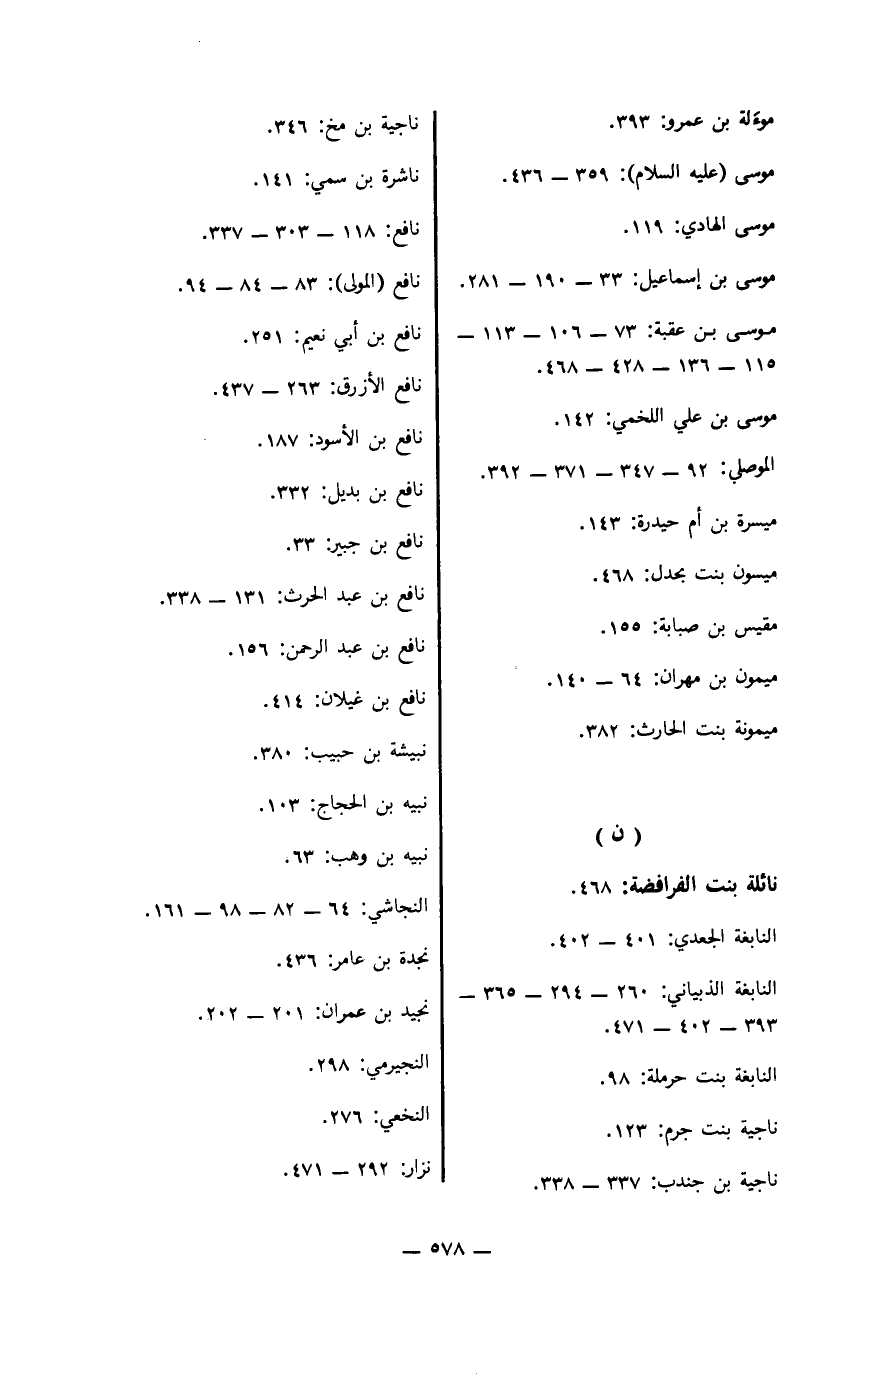 موءَلة بن عمرو: ٣٩٣.
موسى (عليه السلام): ٣٥٩ — ٤٣٦.
موسى الهادي: ١١٩.
موسى بن إسماعيل: ٣٣ — ١٩٠ — ٢٨١.
موسى بن عقبة: ٧٣ — ١٠٦ — ١١٣ —
١١٥ — ١٣٦ — ٤٢٨ — ٤٦٨.
موسى بن علي اللخمي: ١٤٢.
الموصلي: ٩٢ — ٣٤٧ — ٣٧١ — ٣٩٢.
ميسرة بن أم حيدرة: ١٤٣.
ميسون بنت بحدل: ٤٦٨.
مقيس بن صبابة: ١٥٥.
ميمون بن مهران: ٦٤ — ١٤٠.
ميمونة بنت الحارث: ٣٨٢.
( ن )
نائلة بنت الفرافضة: ٤٦٨.
النابغة الجعدي: ٤٠١ — ٤٠٢.
النابغة الذبياني: ٢٦٠ — ٢٩٤ — ٣٦٥ —
٣٩٣ — ٤٠٢ — ٤٧١.
النابغة بنت حرملة: ٩٨.
ناجية بنت جرم: ١٢٣.
ناجية بن جندب: ٣٣٧ — ٣٣٨.
ناجية بن مخ: ٣٤٦.
ناشرة بن سمي: ١٤١.
نافع: ١١٨ — ٣٠٣ — ٣٣٧.
نافع (المولى): ٨٣ — ٨٤ — ٩٤.
نافع بن أبي نعيم: ٢٥١.
نافع الأزرق: ٢٦٣ — ٤٣٧.
نافع بن الأسود: ١٨٧.
نافع بن بديل: ٣٣٢.
نافع بن جبير: ٣٣.
نافع بن عبد الحرث: ١٣١ — ٣٣٨.
نافع بن عبد الرحمن: ١٥٦.
نافع بن غيلان: ٤١٤.
نبيشة بن حبيب: ٣٨٠.
نبيه بن الحجاج: ١٠٣.
نبيه بن وهب: ٦٣.
النجاشي: ٦٤ — ٨٢ — ٩٨ — ١٦١.
نجدة بن عامر: ٤٣٦.
نجيد بن عمران: ٢٠١ — ٢٠٢.
النجيرمي: ٢٩٨.
النخعي: ٢٧٦.
نزار: ٢٩٢ — ٤٧١.
— ٥٧٨ —